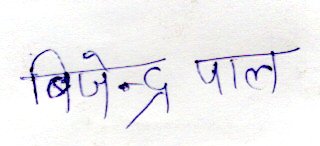 बिजेन्द्र पाल